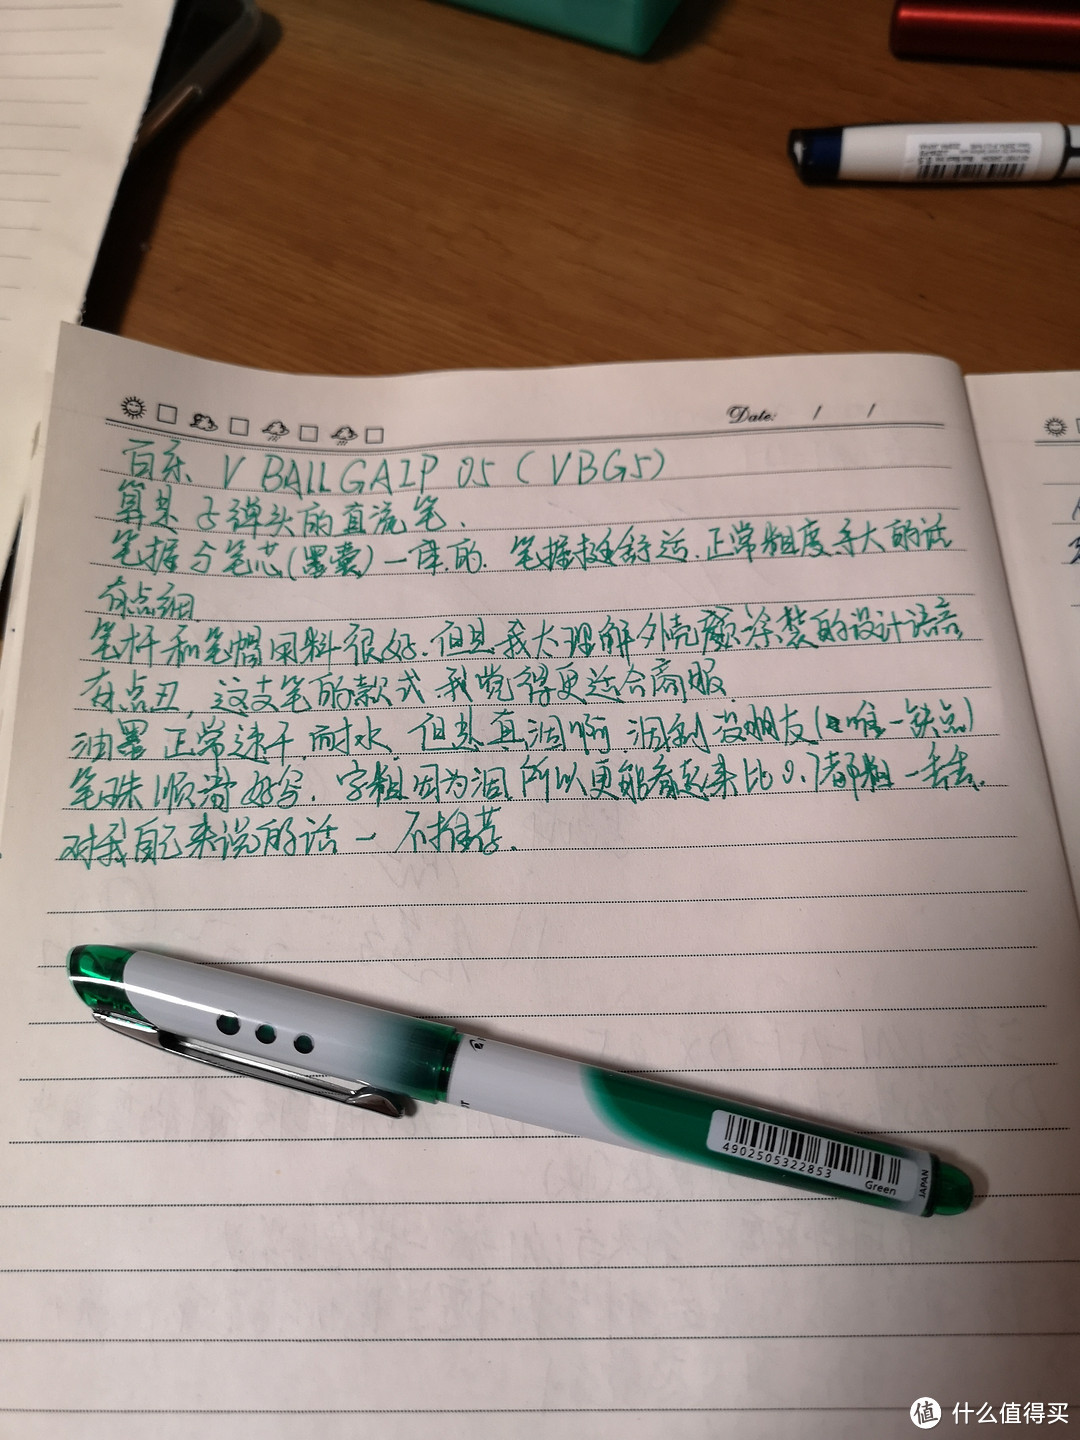 Date: / /
百乐 V BALL GAIP 05 (VBG5)
算是子弹头的直流笔.
笔握与笔芯(墨囊)一体的. 笔握挺舒适.正常粗度手大的话
有点细.
笔杆和笔帽用料很好.但是我大理解外壳 涂装的设计语言
有点丑,这支笔的款式.我觉得更适合商服.
油墨正常速干.耐水. 但是真润啊.润到没朋友(唯一缺点)
笔珠顺滑好写. 字粗因为润.所以更能看起来比0.7都粗一丢丢.
对我自己来说的话 一 不推荐.
4902505322853
Green
JAPAN
值 什么值得买